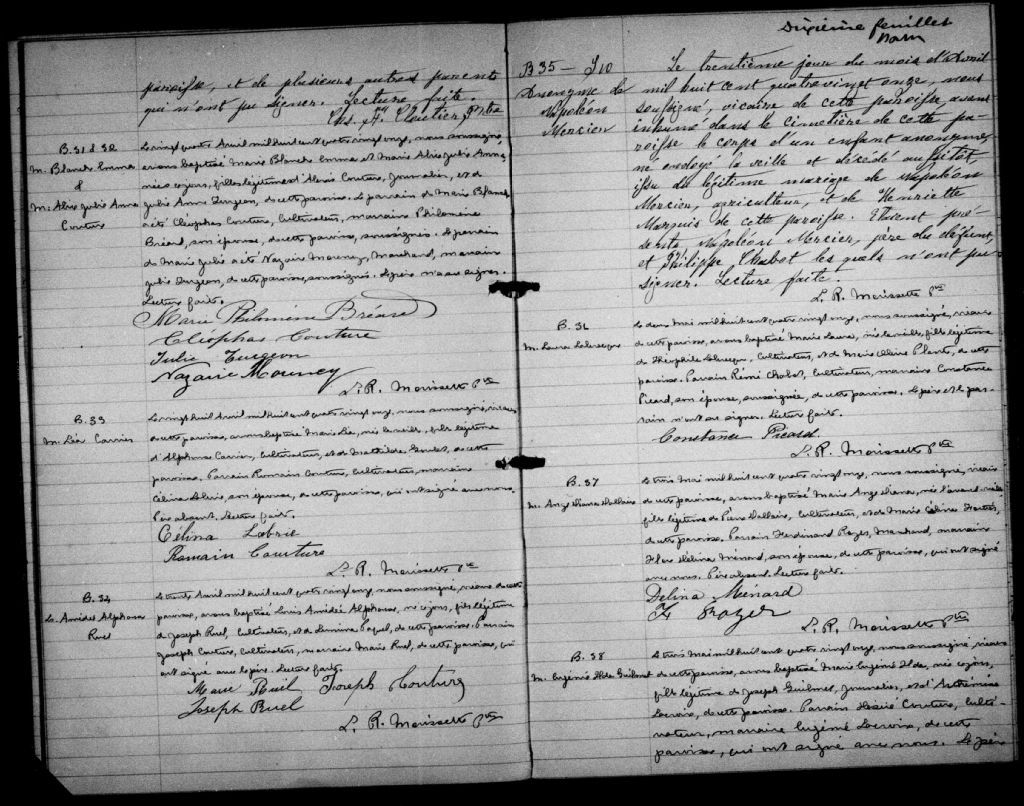 paroisse, et de plusieurs autres parents
qui n'ont pu signer. Lecture faite.
Cloutier Ptre
B. 31 & 32
M. Blanche Emma
&
M. Alice Julie Anna
Couture
Le vingt quatre Avril mil huit cent quatre vingt onze, nous soussigné
avons baptisé Marie Blanche Emma et Marie Alice Julie Anna,
nées ce jour, filles légitimes d'Alexis Couture, Journalier, et de
Julie Anne Turgeon, de cette paroisse. Le parrain de Marie Blanche
a été Cléophas Couture, Cultivateur, marraine Philomène
Bréard, son épouse, de cette paroisse, soussignés. Le parrain
de Marie Julie a été Nazaire Mourney, Marchand, marraine
Julie Turgeon, de cette paroisse, soussignés. Le père n'a su signer.
Lecture faite.
Marie Philomène Bréard
Cléophas Couture
Julie Turgeon
Nazaire Mourney
L. R. Morissette Ptre
B. 33
M. Léa Carrier
Le vingt huit Avril mil huit cent quatre vingt onze, nous soussigné, vicaire
de cette paroisse, avons baptisé Marie Léa, née la veille, fille légitime
d'Alphonse Carrier, Cultivateur, et de Mathilde Goulet, de cette
paroisse. Parrain Romain Couture, Cultivateur, marraine
Célina Labrie, son épouse, de cette paroisse, qui ont signé avec nous.
Père absent. Lecture faite.
Célina Labrie
Romain Couture
L. R. Morissette Ptre
B. 34
Ls. Amédée Alphonse
Ruel
Le trente Avril mil huit cent quatre vingt onze, nous soussigné, vicaire de cette
paroisse, avons baptisé Louis Amédée Alphonse, né ce jour, fils légitime
de Joseph Ruel, Cultivateur, et de Lumina Paquet, de cette paroisse. Parrain
Joseph Couture, Cultivateur, marraine Marie Ruel, de cette paroisse, qui
ont signé avec le père. Lecture faite.
Marie Ruel Joseph Couture
Joseph Ruel
L. R. Morissette Ptre
Dixième feuillet
B 35 — S 10
Anonyme de
Napoléon
Mercier
Le trentième jour du mois d'Avril
mil huit cent quatrevingt onze, nous
soussigné, vicaire de cette paroisse, avons
inhumé dans le cimetière de cette pa-
roisse le corps d'un enfant anonyme,
né ondoyé la veille et décédé aussitôt,
issu du légitime mariage de Napoléon
Mercier, agriculteur, et de Henriette
Marquis de cette paroisse. Etaient pré-
sents, Napoléon Mercier, père du défunt,
et Philippe Chabot les quels n'ont pu
signer. Lecture faite.
L. R. Morissette Ptre
B. 36
M. Laura Labrecque
Le deux Mai mil huit cent quatre vingt onze, nous soussigné, vicaire
de cette paroisse, avons baptisé Marie Laura, née la veille, fille légitime
de Théophile Labrecque, Cultivateur, et de Marie Plante, de cette
paroisse. Parrain Rémi Chabot, Cultivateur, marraine Constance
Picard, son épouse, soussignée, de cette paroisse. Le père et le par-
rain n'ont su signer. Lecture faite.
Constance Picard.
L. R. Morissette Ptre
B. 37
M. Ange Diana Vallière
Le trois Mai mil huit cent quatre vingt onze, nous soussigné, vicaire
de cette paroisse, avons baptisé Marie Ange Diana, née l'avant veille
fille légitime de Pierre Vallière, Cultivateur, et de Marie Célina
de cette paroisse. Parrain Ferdinand Marchand, marraine
Délina Ménard, son épouse, de cette paroisse, qui ont signé
avec nous. Père absent. Lecture faite.
Délina Ménard
L. R. Morissette Ptre
B. 38
M. Eugénie Ilda Guilmet
Le trois Mai mil huit cent quatre vingt onze, nous soussigné, vicaire
de cette paroisse, avons baptisé Marie Eugénie Ilda, née ce jour,
fille légitime de Joseph Guilmet, Journalier, et d'
Lacroix, de cette paroisse. Parrain Couture, Culti-
vateur, marraine Eugénie Lacroix, de cette
paroisse, qui ont signé avec nous. Le père